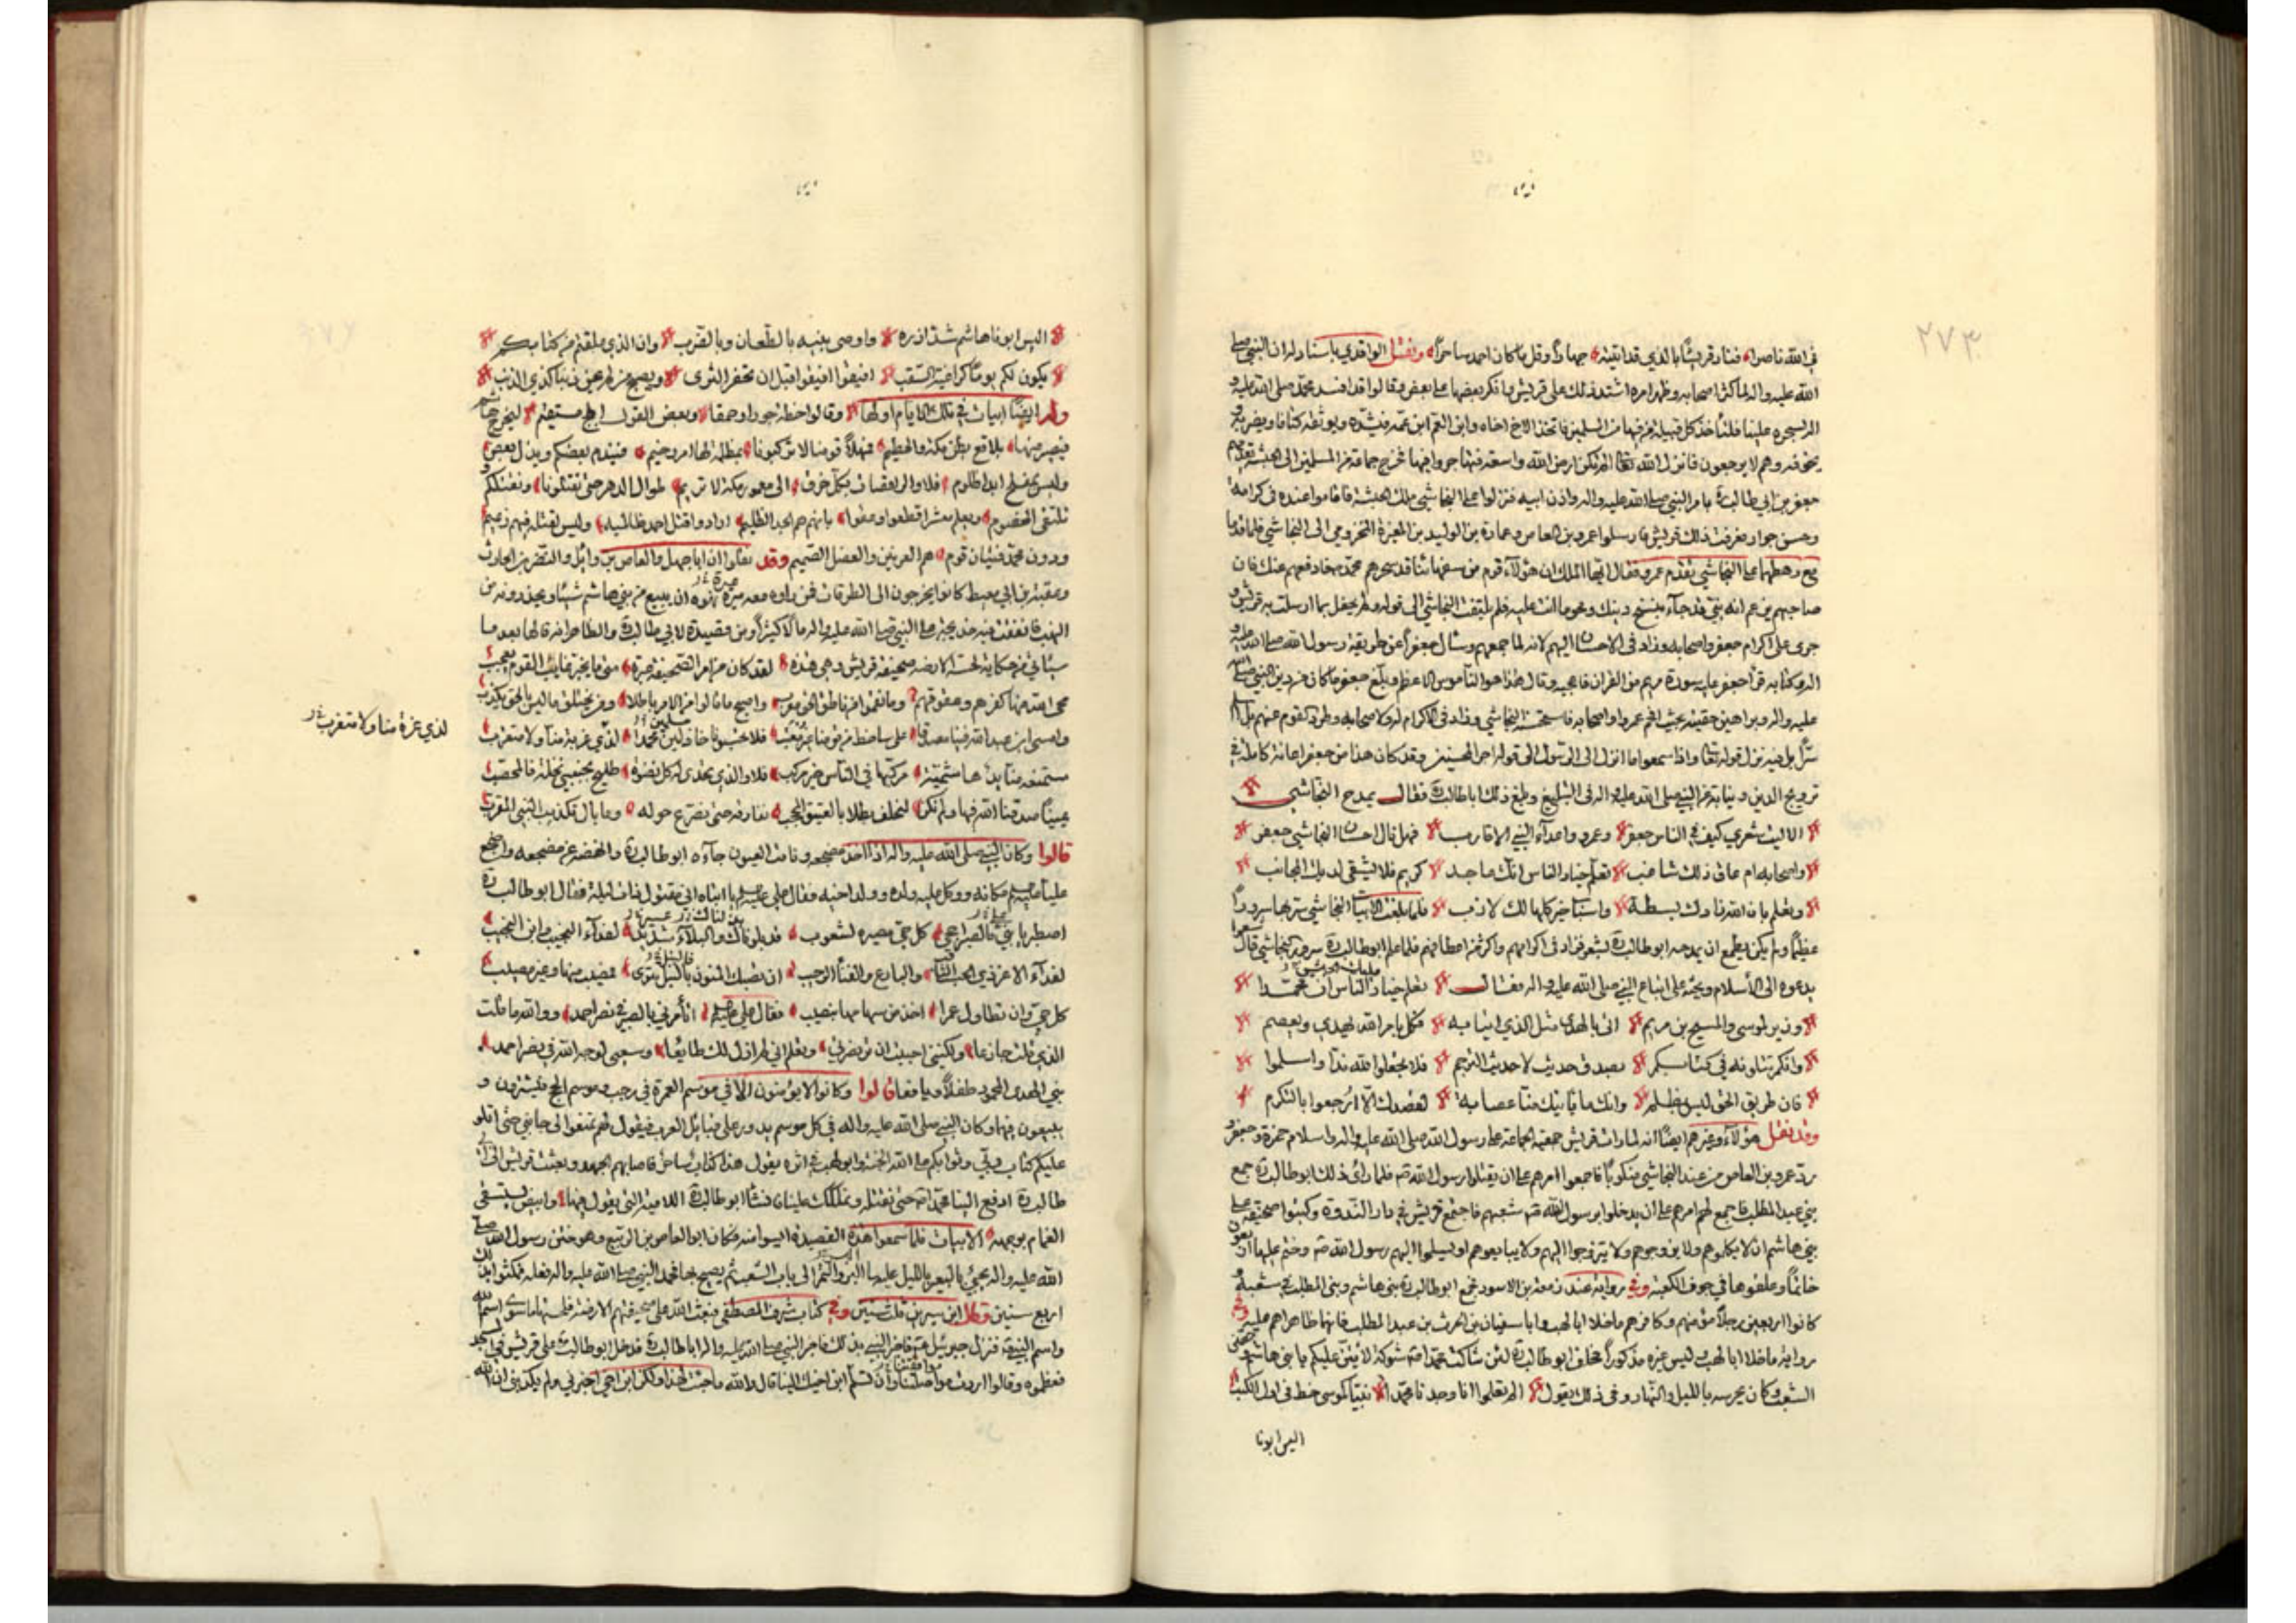 ٢٧٣
في الله ناصرا فناد قريشا بالذي قد اتيته جهارا وقل ما كان احمد ساحرا ونقل الواقدي باسناد له ان النبي صلى
الله عليه واله لما كثر اصحابه وظهر امره اشتد ذلك على قريش وانكر بعضها على بعض وقالوا قد افسد محمد صلى الله عليه و
اله بسحره علينا فلنأخذ كل قبيلة من فيها من المسلمين فاتخذ الاخ اخاه وابن العم ابن عمه فيشده ويوثقه كتافا ويضربه و
يخوفه وهم لا يرجعون فانزل الله تعالى الم تكن ارض الله واسعة فتهاجروا فيها فخرج جماعة من المسلمين الى الحبشة يقدمهم
جعفر بن ابي طالب بامر النبي صلى الله عليه واله واذن ابيه فنزلوا على النجاشي ملك الحبشة فاقاموا عنده في كرامة
وحسن جوار فعرفت ذلك قريش فارسلوا عمرو بن العاص وعمارة بن الوليد بن المغيرة المخزومي الى النجاشي فلما قدما
مع رهطهما على النجاشي تقدم عمرو فقال ايها الملك ان هؤلاء قوم من سفهائنا قد سحرهم محمد فادفعهم عنك فان
صاحبهم يزعم انه نبي قد جاء بنسخ دينك ومحو ما انت عليه فلم يلتفت النجاشي الى قوله ولم يحفل بما ارسلت به قريش و
جرى على اكرام جعفر واصحابه وزاد في الاحسان اليهم لانه لما جمعهم وسأل جعفرا عن طريقة رسول الله صلى الله عليه و
اله وكتابه قرأ جعفر عليه سورة مريم من القران فاعجبه وقال هذا هو الناموس الاعظم وبلغ جعفر ما كان من دين النبي صلى الله
عليه واله وبراهين حقيته بحيث افحم عمرو واصحابه فاستحسن النجاشي وزاد في الاكرام له ولاصحابه وطرد القوم عنهم
سرا بل فيه نزل قوله تعالى واذا سمعوا ما انزل الى الرسول الى قوله اجر المحسنين وقد كان هذا من جعفر اعانة كاملة في
ترويج الدين ونيابة عن النبي صلى الله عليه واله في التبليغ وبلغ ذلك ابا طالب فقال يمدح النجاشي
الا ليت شعري كيف في الناس جعفر وعمرو واعداء النبي الاقارب فهل نال احسان النجاشي جعفر
واصحابه ام عاق ذلك شاغب تعلم خيار الناس انك ماجد كريم فلا يشقى لديك المجانب
وتعلم بان الله زادك بسطة واسباب خير كلها لك لازب فلما بلغت الابيات النجاشي سر بها سرورا
عظيما ولم يكن يطمع ان يمدحه ابو طالب بشعر فزاد في اكرامهم واكثر من اعطائهم فلما علم ابو طالب سرور النجاشي قال
يدعوه الى الاسلام ويحثه على اتباع النبي صلى الله عليه واله فقال تعلم خيار الناس ان محمدا
وزير لموسى والمسيح بن مريم اتى بالهدى مثل الذي اتيا به فكل بامر الله يهدي ويعصم
وانكم تتلونه في كتابكم بصدق حديث لا حديث الترجم فلا تجعلوا لله ندا واسلموا
فان طريق الحق ليس بمظلم وانك ما تأتيك منا عصابة لقصدك الا ارجعوا بالتكرم
وقد نقل هؤلاء وغيرهم ايضا انه لما رات قريش حمية الجماعة على رسول الله صلى الله عليه واله واسلام حمزة وجعفر و
رد عمرو بن العاص من عند النجاشي منكوبا فاجمعوا امرهم على ان يقتلوا رسول الله فلما رأى ذلك ابو طالب جمع
بني عبد المطلب فاجمع لهم امرهم على ان يدخلوا رسول الله شعبهم فاجتمع قريش في دار الندوة وكتبوا صحيفة على
بني هاشم ان لا يكلموهم ولا يزوجوهم ولا يتزوجوا اليهم ولا يبايعوهم او يسلموا اليهم رسول الله وختم عليها اربعون
خاتما وعلقوها في جوف الكعبة وفي رواية عند زمعة بن الاسود فجمع ابو طالب بني هاشم وبني المطلب في شعبه و
كانوا اربعين رجلا مؤمنهم وكافرهم ما خلا ابا لهب وابا سفيان بن الحرث بن عبد المطلب فانهما ظاهراهم عليه وفي
رواية ما خلا ابا لهب ليس غيره مذكورا فحلف ابو طالب لئن شاكت محمدا شوكة لاتين عليكم يا بني هاشم وحصن
الشعب وكان يحرسه بالليل والنهار وفي ذلك يقول الم تعلموا انا وجدنا محمدا نبيا كموسى خط في اول الكتب
اليس ابونا
اليس ابونا هاشم شد ازره واوصى بنيه بالطعان وبالضرب وان الذي من كتابكم
يكون لكم يوما كراغية السقب افيقوا افيقوا قبل ان تحفر الثرى ويصبح من لم يجن ذنبا كذي الذنب
وله ايضا ابيات في تلك الايام اولها وقالوا خطة جورا وحمقا وبعض القول ابلج مستقيم لتخرج هاشم
فيصير منها بلاقع بطن مكة والحطيم فمهلا قومنا لا تركبونا بمظلمة لها امر وخيم فيندم بعضكم ويذل بعض
وليس بمفلح ابدا ظلوم فلا والراقصات بكل خرق الى معمور مكة لا تريم طوال الدهر حتى تقتلونا ونقتلكم و
تلتقي الخصوم ويعلم معشر قطعوا وعقوا بانهم هم الجد الظليم ارادوا قتل احمد ظالميه وليس لقتله فيهم زعيم
ودون محمد فتيان قوم هم العرنين والعضل الصميم وقد نقلوا ان ابا جهل والعاص بن وائل والنضر بن الحارث
وعقبة بن ابي معيط كانوا يخرجون الى الطرقات فمن راوه معه ميرة نهوه ان يبيع من بني هاشم شيئا ويحذرونه من
النهب فانفقت فيه خديجة على النبي صلى الله عليه واله مالا كثيرا ومن قصيدة لابي طالب والظاهر انه قالها بعد ما
سيأتي من حكاية لحس الارضة صحيفة قريش وهي هذه لقد كان من امر الصحيفة عبرة متى ما يخبر غايب القوم يعجب
محى الله منها كفرهم وعقوقهم وما نقموا من ناطق الحق معرب واصبح ما قالوا من الامر باطلا ومن يختلق ما ليس بالحق يكذب
وامسى ابن عبد الله فينا مصدقا على ساخط من قومنا غير معتب فلا تحسبونا خاذلين محمدا لذي غربة منا ولا متغرب
مسلمين
لذي عزة منا ولا متغرب
ستمنعه منا يد هاشمية مركبها في الناس خير مركب فلا والذي تحدى له كل نضوة طليح بجنبي نخلة فالمحصب
يمينا صدقنا الله فيها ولم نكن لنحلف بطلا بالعتيق المحجب نفارقه حتى نصرع حوله وما بال تكذيب النبي المقرب
قالوا وكان النبي صلى الله عليه واله اذا اخذ مضجعه ونامت العيون جاءه ابو طالب وانهضه عن مضجعه واضجع
عليا عليه السلام مكانه ووكل عليه ولده وولد اخيه فقال علي عليه السلام يا ابتاه اني مقتول ذات ليلة فقال ابو طالب
اصطبر يا بني فالصبر احجى كل حي مصيره لشعوب قد بلوناك والبلاء شديد لفداء النجيب وابن النجيب
لفداء الاعز ذي الحسب الثاقب والباع والفناء الرحيب ان تصبك المنون بالنبل تترى فمصيب منها وغير مصيب
كل حي وان تطاول عمرا اخذ من سهامها بنصيب فقال علي عليه السلام اتأمرني بالصبر في نصر احمد ووالله ما قلت
الذي قلت جازعا ولكنني احببت ان تر نصرتي وتعلم اني لم ازل لك طايعا وسعيي لوجه الله في نصر احمد
نبي الهدى المحمود طفلا ويافعا قالوا وكانوا لا يؤمنون الا في موسم العمرة في رجب وموسم الحج فيشترون و
يبيعون فيهما وكان النبي صلى الله عليه واله في كل موسم يدور على قبائل العرب فيقول لهم تمنعوا لي جانبي حتى اتلو
عليكم كتاب ربي وثوابكم على الله الجنة وابو لهب في اثره يقول هذا كذاب ساحر فاصابهم الجهد وبعثت قريش الى ابي
طالب ادفع الينا محمدا حتى نقتله ونملكك علينا فانشأ ابو طالب اللامية التي يقول فيها وابيض يستسقى
الغمام بوجهه الابيات فلما سمعوا هذه القصيدة ايسوا منه فكان ابو العاص بن الربيع وهو ختن رسول الله صلى
الله عليه واله يجئ بالعير بالليل عليها البر والتمر الى باب الشعب ثم يصيح بها فحمد النبي صلى الله عليه واله فعله فمكثوا بذلك
اربع سنين وقال ابن سيرين ثلث سنين وفي كتاب شرف المصطفى فبعث الله على صحيفتهم الارضة فلحستها ما سوى اسم الله
واسم النبي فنزل جبرئيل فاخبر النبي بذلك فاخبر النبي صلى الله عليه واله ابا طالب فدخل ابو طالب على قريش في المسجد
فعظموه وقالوا اردت مواصلتنا وان تسلم ابن اخيك الينا قال والله ما جئت لهذا ولكن ابن اخي اخبرني ولم يكذبني ان الله